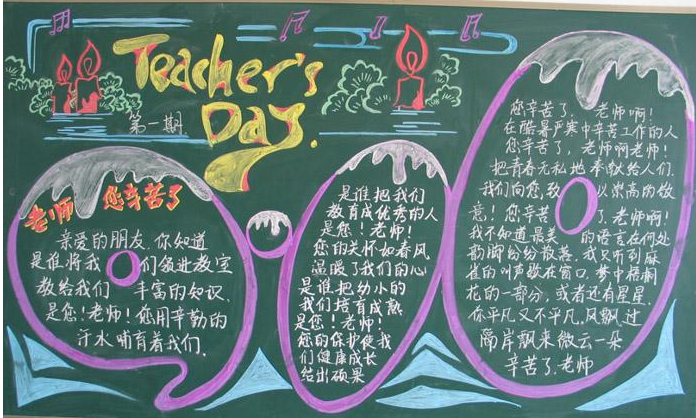 Teacher's
Day.
第一期
老师 您辛苦了
亲爱的朋友.你知道
是谁.将我们领进教室
教给我们丰富的知识.
是您!老师!您用辛勤的
汗水哺育着我们.
是谁把我们
教育成优秀的人
是您!老师!
您的关怀如春风
温暖了我们的心
是谁把幼小的
我们培育成熟
是您!老师!
您的保护使我
们健康成长
结出硕果
您辛苦了.老师啊!
在酷暑严寒中辛苦工作的人
您辛苦了,老师啊老师!
把青春无私地奉献给人们.
我们向您,致以崇高的敬
意!您辛苦了.老师啊!
我不知道最美的语言在何处
韵脚纷纷散落.我只听到麻
雀的叫声歇在窗口.梦中梧桐
花的一部分,或者还有星星.
你平凡又不平凡,风飘过
隔岸飘来微云一朵
辛苦了.老师